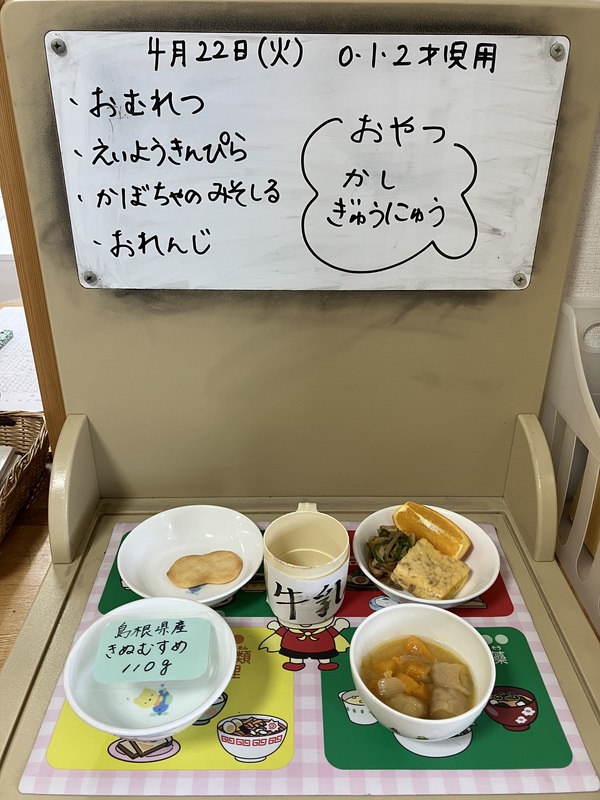 4月22日(火) 0・1・2才児用
、おむれつ
、えいようきんぴら
、かぼちゃのみそしる
、おれんじ
おやつ
かし
ぎゅうにゅう
牛乳
島根県産
きぬむすめ
110g
類
藻